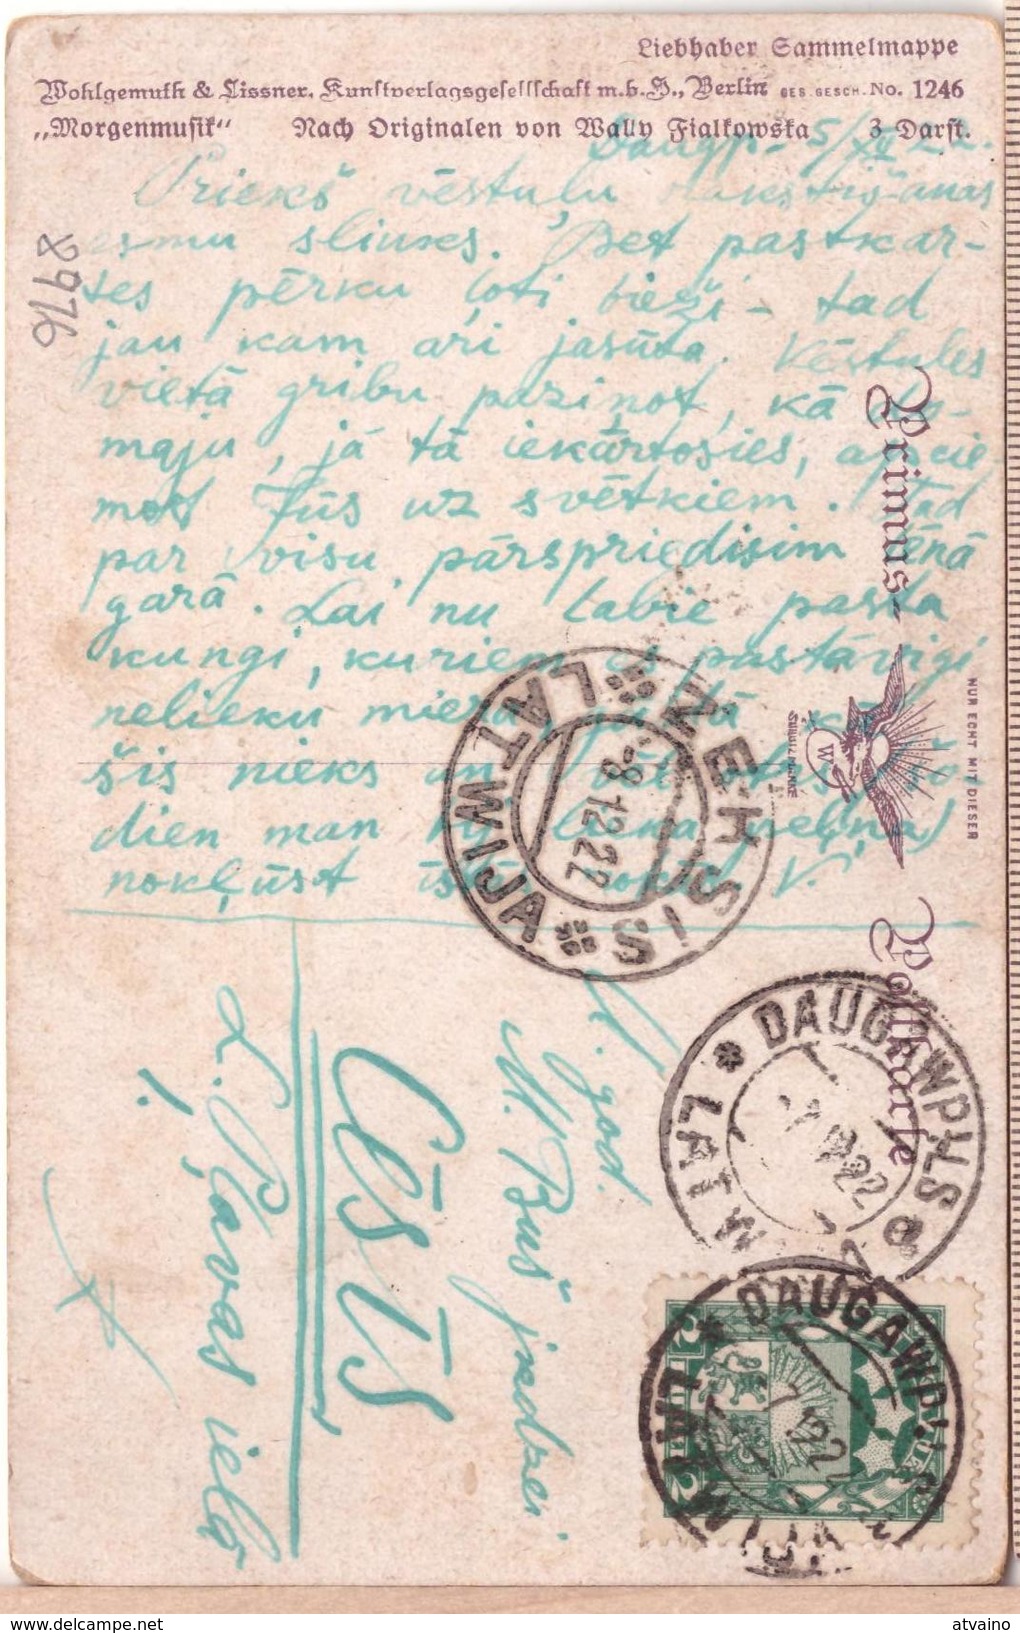 Liebhaber Sammelmappe
Wohlgemuth & Lissner, Kunstverlagsgesellschaft m.b.H., Berlin GES. GESCH. No. 1246
„Morgenmusik“ Nach Originalen von Wally Fialkowska 3 Darst.
Daugp. 5/XII 22.
Priekš vēstuļu rakstīšanas
esmu slinks. Bet pastkar-
tes pērku ļoti bieži – tad
jau kam arī jasūta. Vēstules
vietā gribu paziņot, kā do-
maju, ja tā iekārtosies, apcie
mot Jūs uz svētkiem. Tad
par visu pārspriedīsim
garā. Lai nu labie pasta
kungi, kuriem es pastāvīgi
nelieku miera
šis nieks un
dien man
nokļūst V.
2976
Primus-Postkarte
NUR ECHT MIT DIESER
W
SCHUTZ-MARKE
ZEHSIS LATWIJA
-8 12 22
DAUGAWPILS LATWIJA
XII 22
DAUGAWPILS LATWIJA
12 22
2 2
A. god.
M. Buš jndzei
Cēsīs
L. Pļavas ielā
1.
atvaino